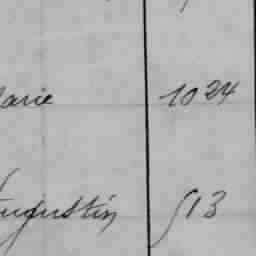 arie 1024
Augustin 513